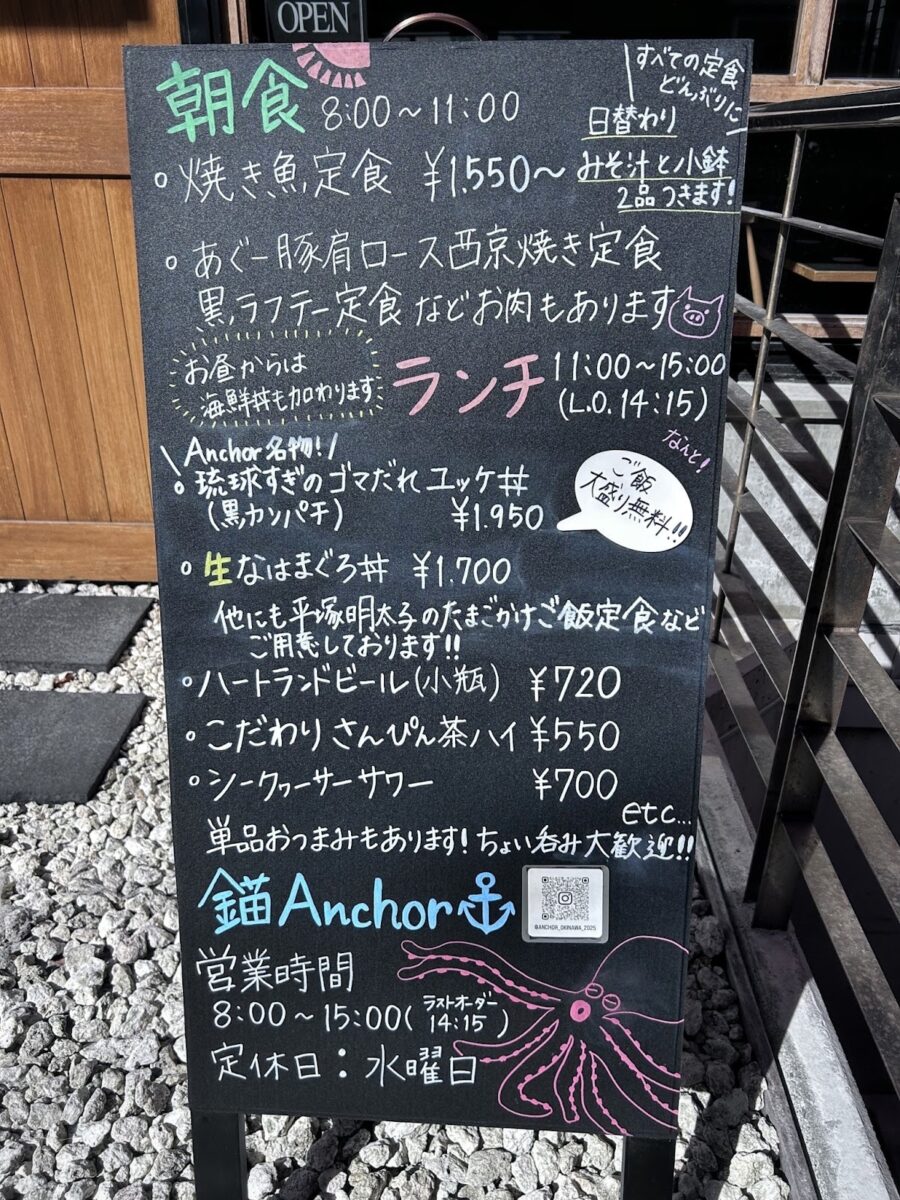 OPEN
朝食 8:00～11:00
すべての定食
どんぶりに
日替わり
みそ汁と小鉢
2品つきます!
焼き魚定食 ¥1.550～
あぐー豚肩ロース西京焼き定食
黒ラフテー定食などお肉もあります
お昼からは
海鮮丼も加わります
ランチ 11:00～15:00
(L.O.14:15)
Anchor名物!
琉球すぎのゴマだれユッケ丼
(黒カンパチ) ¥1.950
なんと!
ご飯
大盛り無料!!
生なはまぐろ丼 ¥1.700
他にも平塚明太子のたまごかけご飯定食など
ご用意しております!!
ハートランドビール(小瓶) ¥720
こだわりさんぴん茶ハイ ¥550
シークヮーサーサワー ¥700
etc...
単品おつまみもあります!ちょい呑み大歓迎!!
錨Anchor
@ANCHOR_OKINAWA_2025
営業時間
8:00～15:00(ラストオーダー14:15)
定休日:水曜日